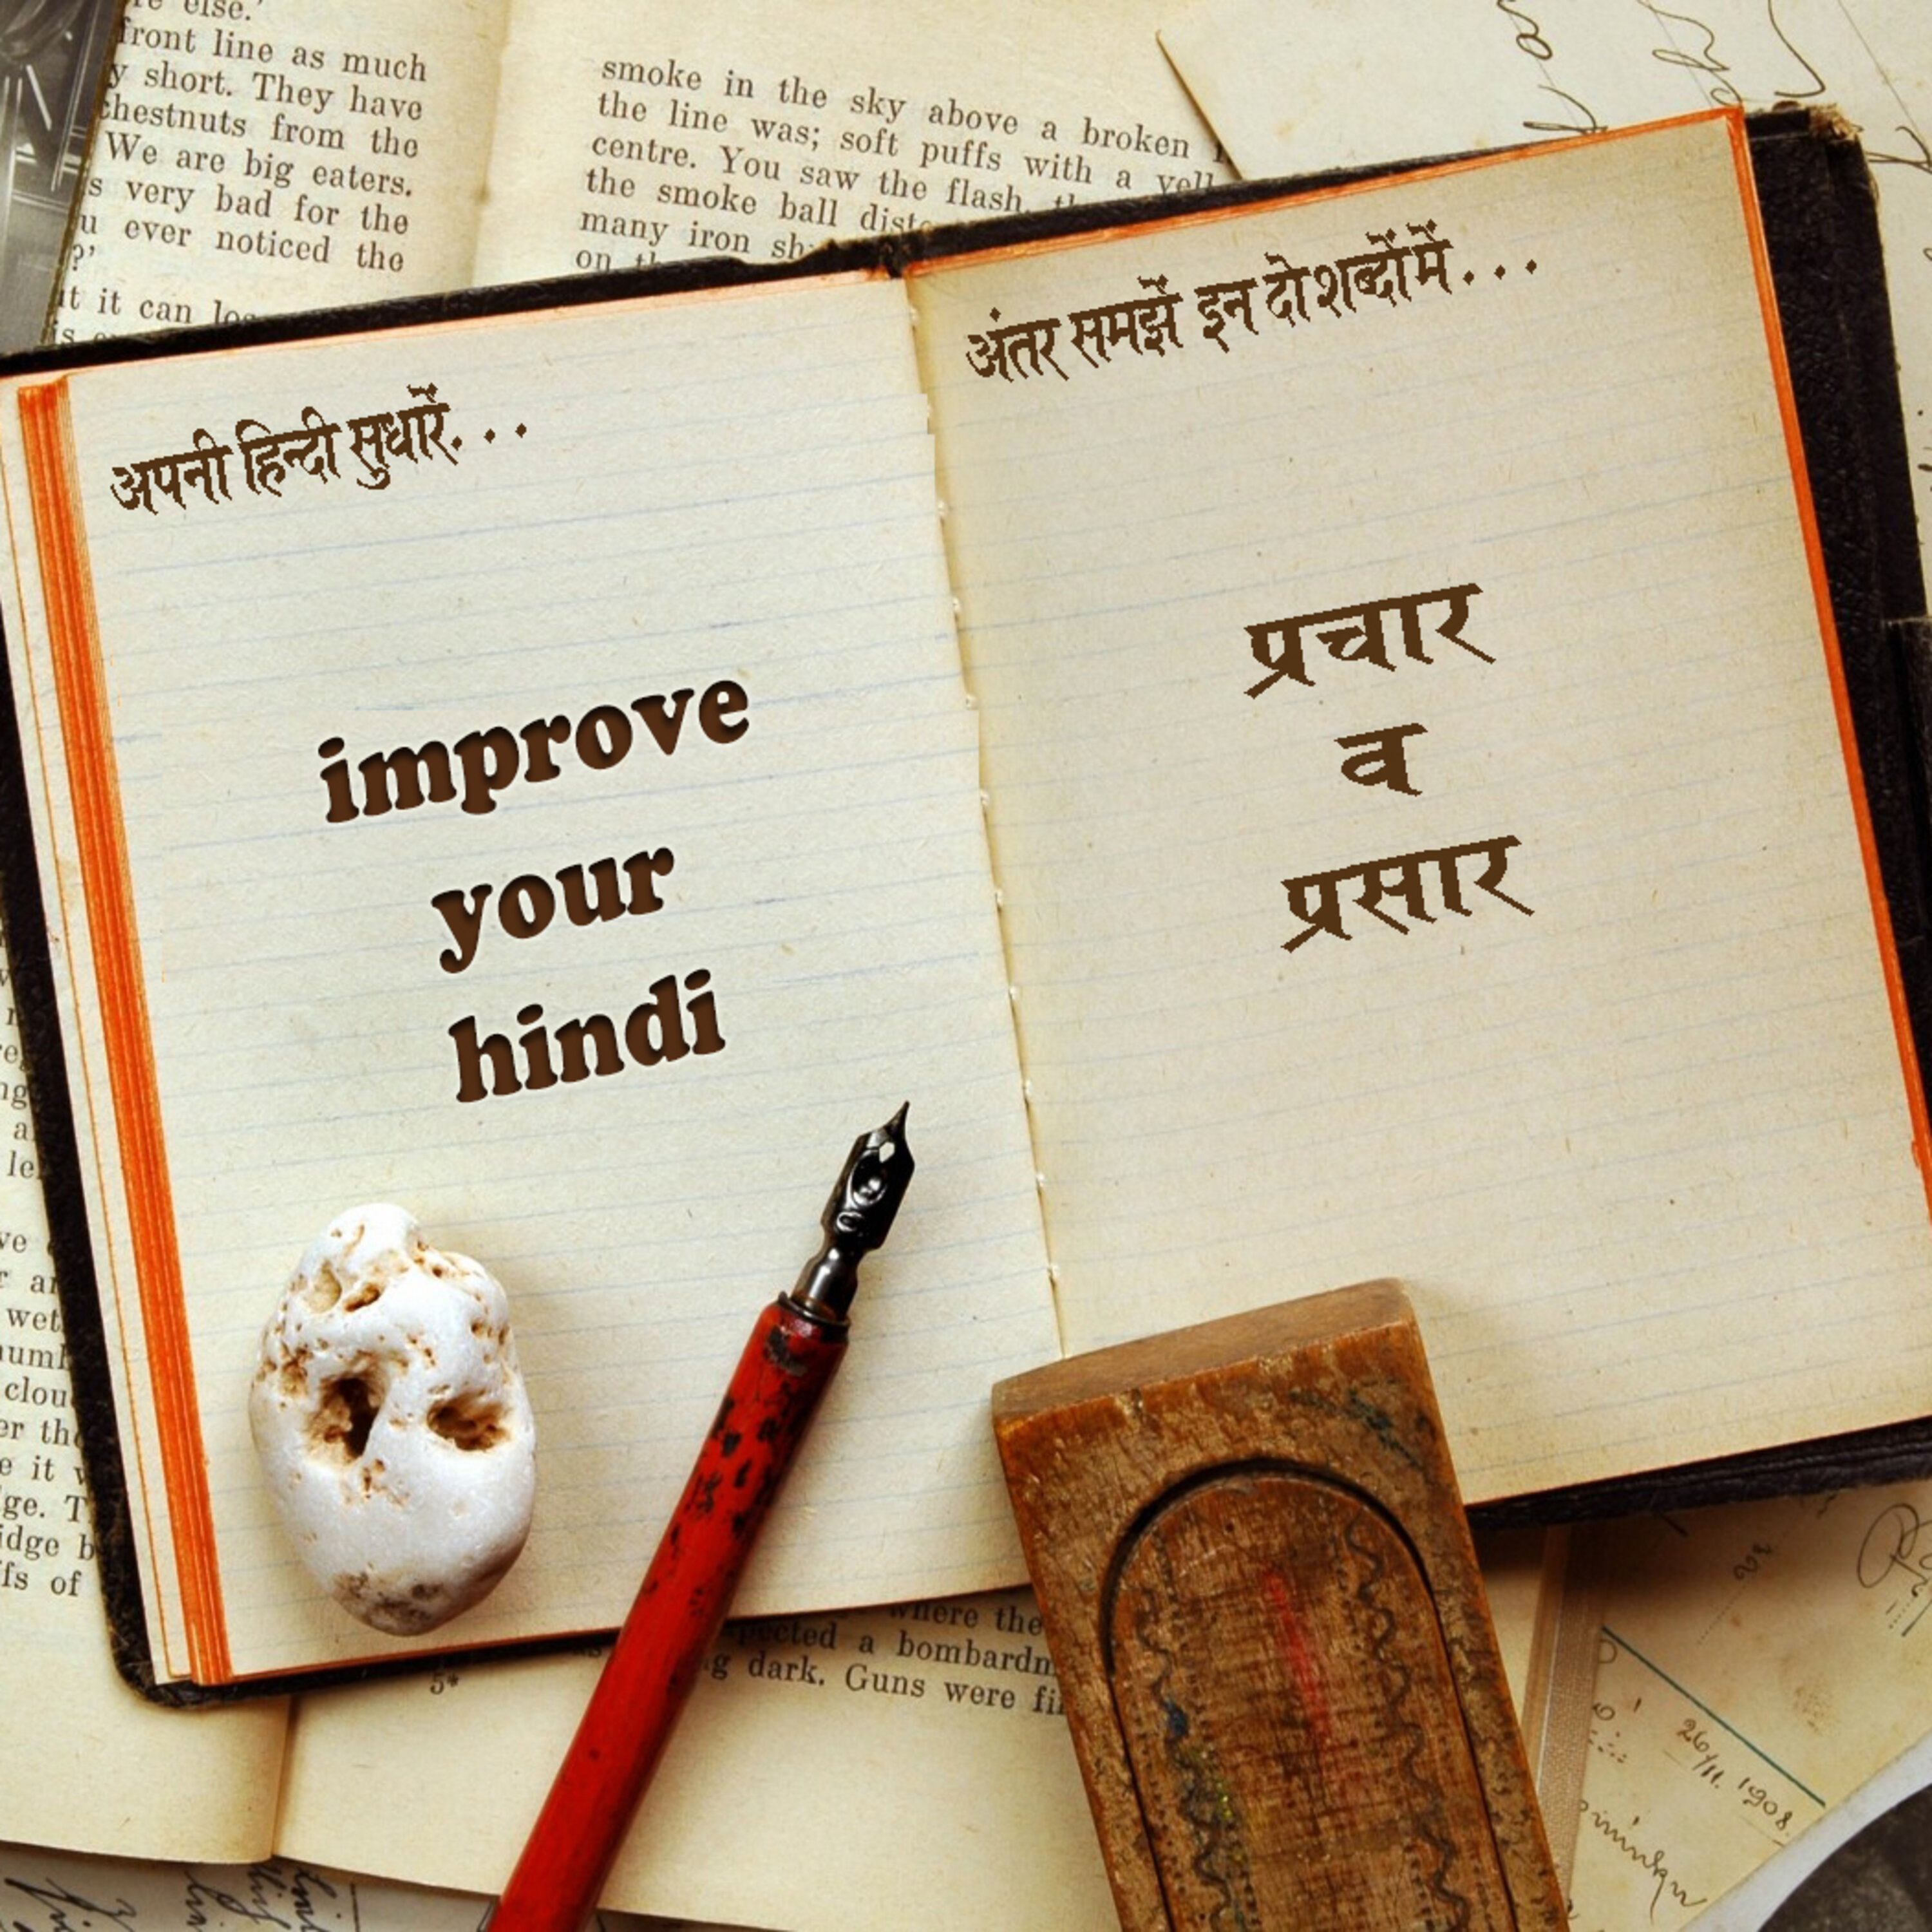 re else.'
front line as much
y short. They have
chestnuts from the
We are big eaters.
s very bad for the
u ever noticed the
?'
it it can
smoke in the sky above a broken
the line was; soft puffs with a
centre. You saw the flash,
the smoke ball
many iron
on
अपनी हिन्दी सुधारें...
improve
your
hindi
अंतर समझें इन दो शब्दों में...
प्रचार
व
प्रसार
wet
er the
e it
ge. T
idge b
fs of
where the
a bombardm
g dark. Guns were
5*
26/11. 1908.